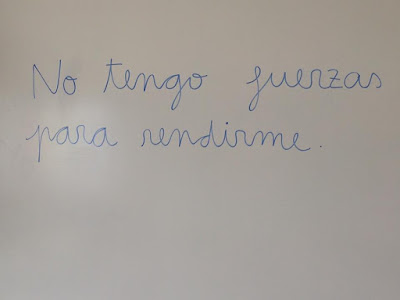 No tengo fuerzas
para rendirme.